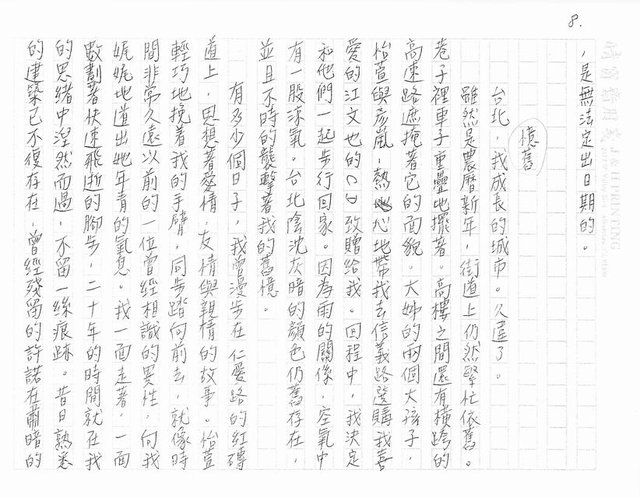 8.
，是無法定出日期的。
憶舊
台北，我成長的城市。久違了。
雖然是農曆新年，街道上仍然繁忙依舊。
巷子裡車子重疊地擺著。高樓之間還有橫跨的
高速路遮掩著它的面貌。大姊的兩個大孩子，
怡萱與彥嵐，熱心地帶我去信義路選購我喜
愛的江文也的CD致贈給我。回程中，我決定
和他們一起步行回家。因為雨的關係，空氣中
有一股涼氣。台北陰沈灰暗的顏色仍舊存在，
並且不時的襲擊著我的舊憶。
有多少個日子，我曾漫步在仁愛路的紅磚
道上，思想著愛情，友情與親情的故事。怡萱
輕巧地挽著我的手臂，同步踏向前去，就像時
間非常久遠以前的一位曾經相識的異性，向我
娓娓地道出她年青的氣息。我一面走著，一面
數劃著快速飛逝的腳步，二十年的時間就在我
的思緒中涅然而過，不留一絲痕跡。昔日熟悉
的建築已不復存在，曾經殘留的許諾在肅暗的